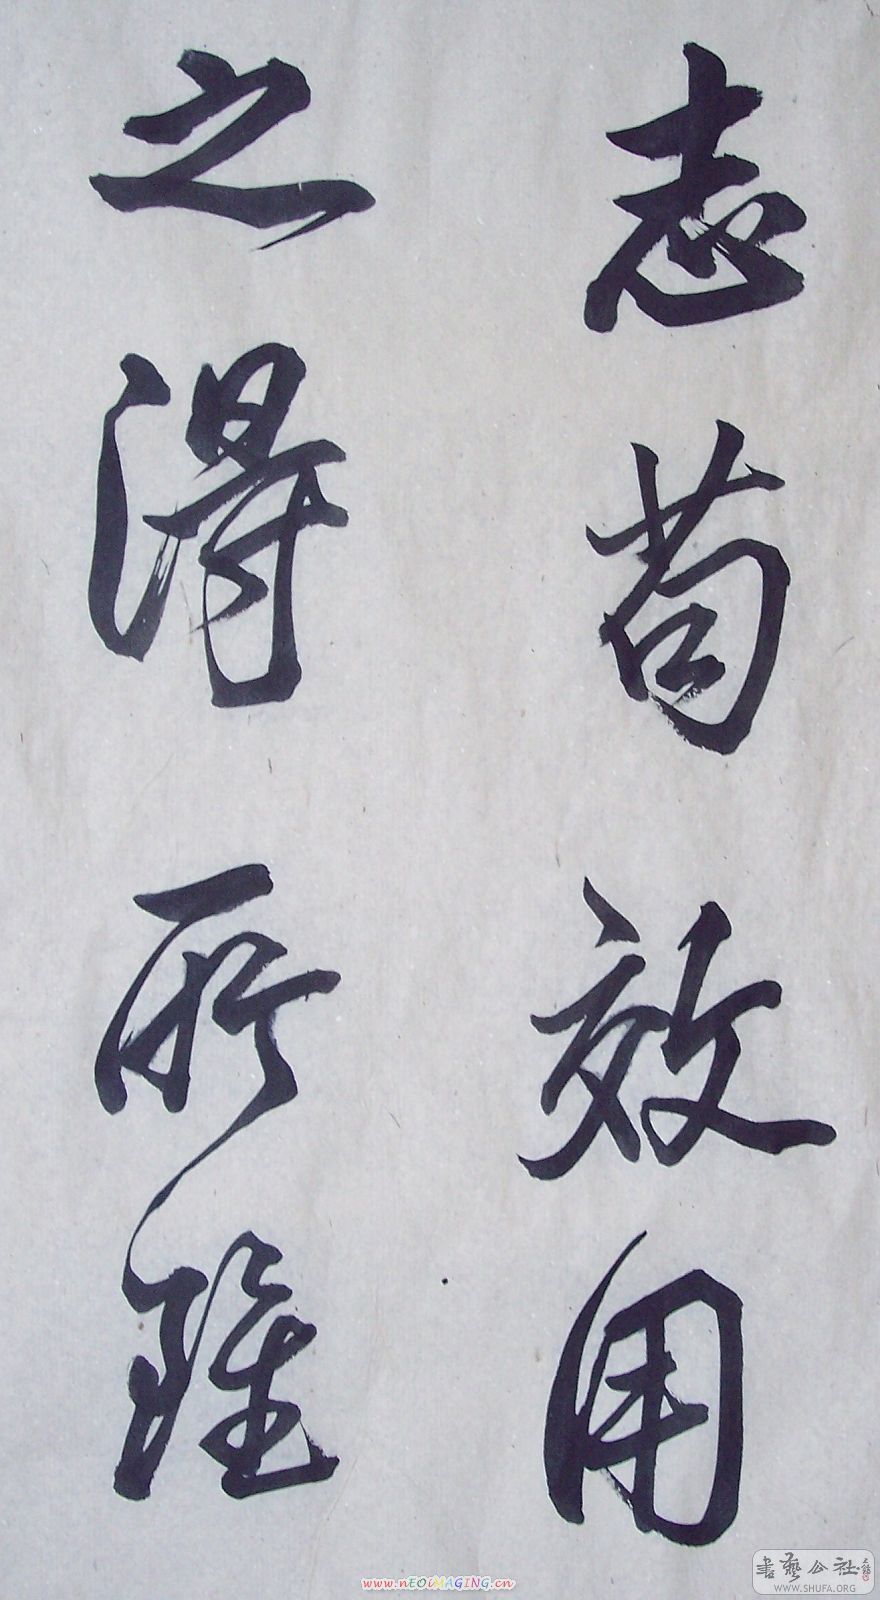 志苟效用
之得所雖
www.nEOiMAGING.cn
書藝公社
WWW.SHUFA.ORG